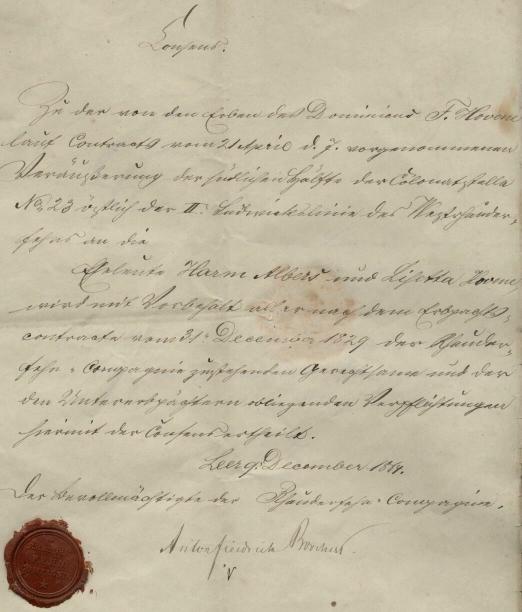 Consens.
Zu der von den Erben des Dominicus F. Hovens
laut Contracts vom 21 April d. J. vorgenommenen
Veräußerung der südlichen Hälfte der Colonatstelle
No 23 östlich der II. des Westrhauder-
fehns an die
Eheleute Harm Albers und Lisetta Hovens
wird mit Vorbehalt aller nach dem Erbpachts-
contracte vom 31. December 1829 der Rhauder-
fehn-Compagnie zustehenden Gerechtsame und der
den Untererbpächtern obliegenden Verpflichtungen
hiermit der Consens ertheilt.
Leer 9. December
Der Bevollmächtigte der Rhauderfehn-Compagnie.
Anton Friedrich Borchers